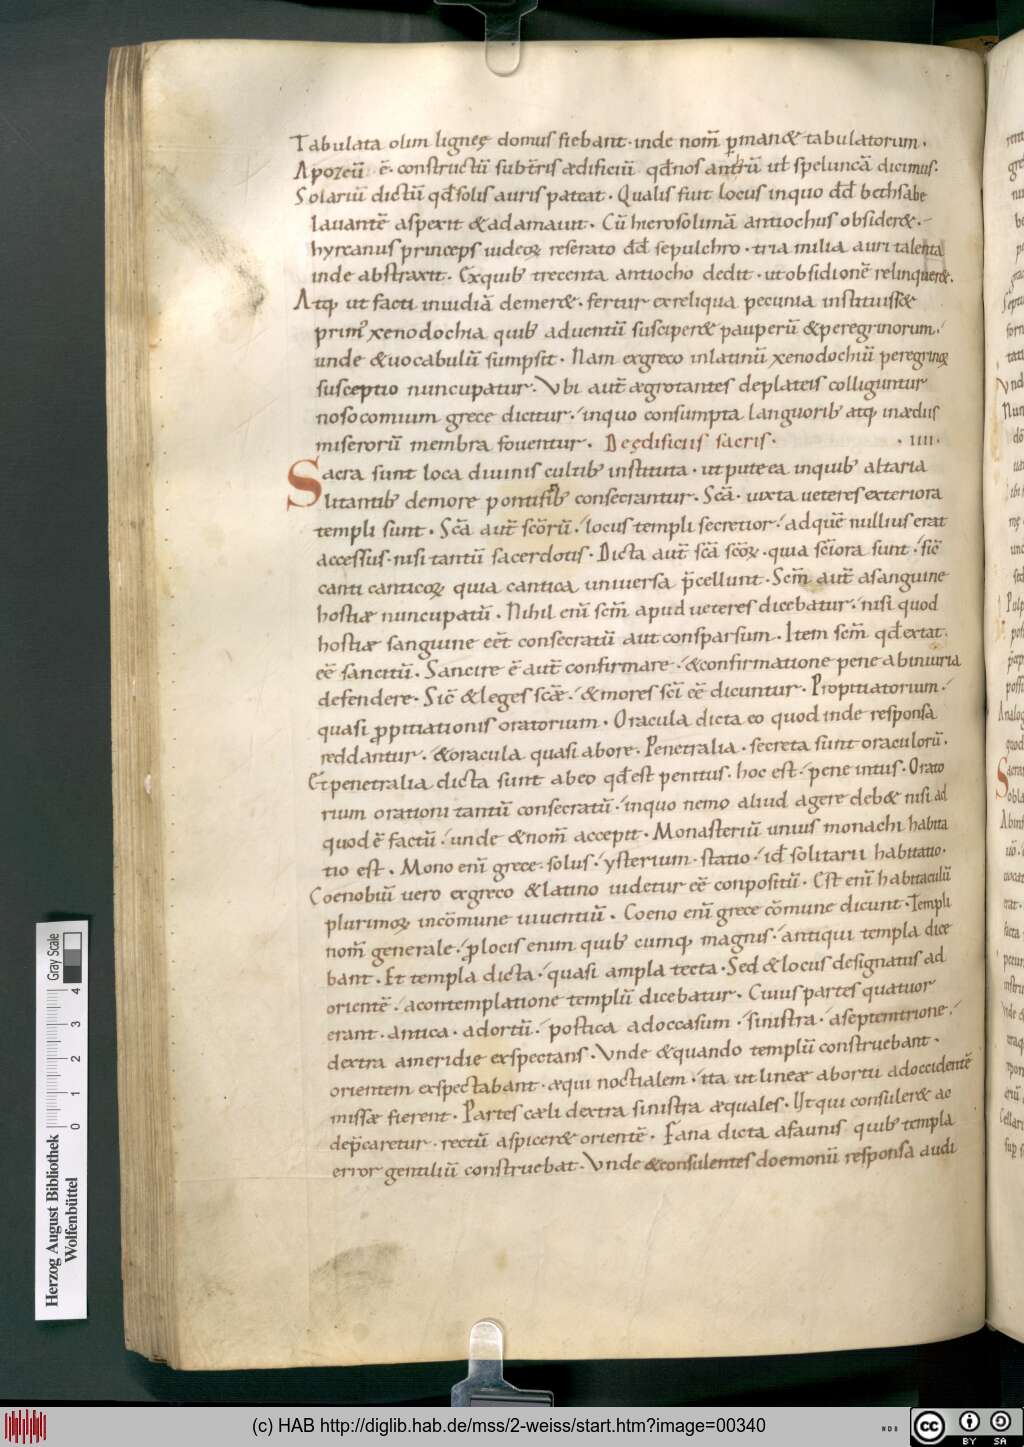 Tabulata olim ligneę domus fiebant · inde nom̄ ꝑman& tabulatorum ·
Apozeū ē · constructū subt̄ris ædificiū qđ nos antrū ul̄ speluncā dicimus ·
Solariū dictū qđ solis auris pateat · Qualis fuit locus in quo đđ bethsabe
lauantē aspexit & adamauit · Cū hierosolimā antiochus obsider& ·
hyrcanus princeps iudeoꝝ reserato đđ sepulchro · tria milia auri talenta
inde abstraxit · Ex quib; trecenta antiocho dedit · ut obsidionē relinquer& ·
Atq; ut facti inuidiā demer& · fertur ex reliqua pecunia instituiss&
prim; xenodochia quib; aduentū susciper& pauperū & peregrinorum ·
unde & uocabulū sumpsit · Nam ex greco in latinū xenodochiū peregrinoꝝ
susceptio nuncupatur · Vbi aut̄ ægrotantes de plateis colliguntur
nosocomium grece dicitur · in quo consumpta languorib; atq; inædiis
miserorū membra fouentur · De ędificiis sacris · · IIII ·
Sacra sunt loca diuinis cultib; instituta · ut pute ea in quib; altaria
litantib; de more pontifib; consecrantur · Scā · iuxta ueteres exteriora
templi sunt · Scā aut̄ scōrū · locus templi secretior · ad quē nullius erat
accessus · nisi tantū sacerdotis · Dicta aut̄ scā scōꝝ · quia scīora sunt · sic̄
canti canticoꝝ quia cantica uniuersa p̄cellunt · Scm̄ aut̄ a sanguine
hostiæ nuncupatū · Nihil enī scm̄ apud ueteres dicebatur · nisi quod
hostiæ sanguine eēt consecratū aut consparsum · Item scm̄ qđ extat ·
eē sancitū · Sancire ē aut̄ confirmare · & confirmatione pene ab iniuria
defendere · Sic̄ & leges scǣ · & mores scī eē dicuntur · Propitiatorium ·
quasi ꝓpitiationis oratorium · Oracula dicta eo quod inde responsa
reddantur · & oracula quasi ab ore · Penetralia · secreta sunt oraculorū ·
Et penetralia dicta sunt ab eo qđ est penitus · hoc est · pene intus · Orato
rium orationi tantū consecratū · in quo nemo aliud agere deb& nisi ad
quod ē factū · unde & nom̄ accepit · Monasteriū unius monachi habita
tio est · Mono enī grece · solus · ysterium · statio · iđ solitarii habitatio ·
Coenobiū uero ex greco & latino uidetur eē conpositū · Est enī habitaculū
plurimoꝝ incōmune uiuentiū · Coeno enī grece cōmune dicunt · Templi
nom̄ generale · ꝓ locis enim quib; cumq; magnis · antiqui templa dice
bant · Et templa dicta · quasi ampla tecta · Sed & locus designatus ad
orientē · a contemplatione templū dicebatur · Cuius partes quatuor
erant · antica · ad ortū · postica ad occasum · sinistra · a septemtrione ·
dextra a meridie exspectans · Vnde & quando templū construebant ·
orientem exspectabant · æqui noctialem · ita ut lineæ ab ortu ad occidentē
missæ fierent · Partes cæli dextra sinistra æquales · Ut qui consuler& ac
dep̄caretur · rectū aspicer& orientē · Fana dicta a faunis quib; templa
error gentiliū construebat · Vnde & consulentes doemonū responsa audi
Herzog August Bibliothek
Wolfenbüttel
Gray Scale
0 1 2 3 4
(c) HAB http://diglib.hab.de/mss/2-weiss/start.htm?image=00340
cc BY SA